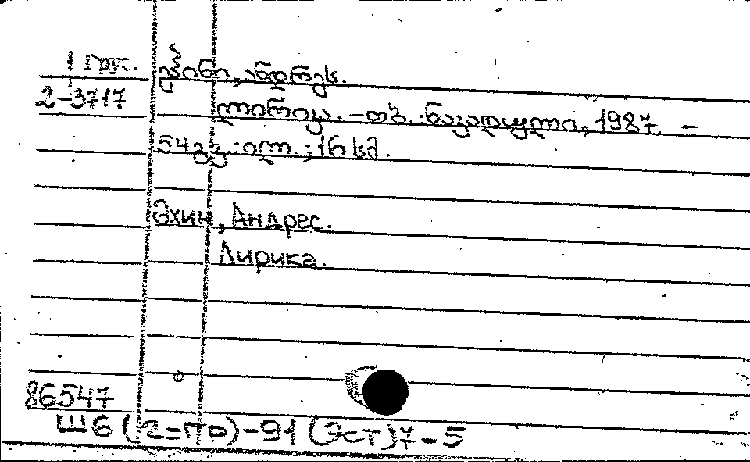 1 Грус. ეხინი, ანდრეს.
2-3717 ლირიკა. – თბ. : ნაკადული, 1987. –
54გვ. : ილ. ; 16 სმ.
Эхин, Андрес.
Лирика.
86547
Ш6(2=Пр)-91(Эст)7-5